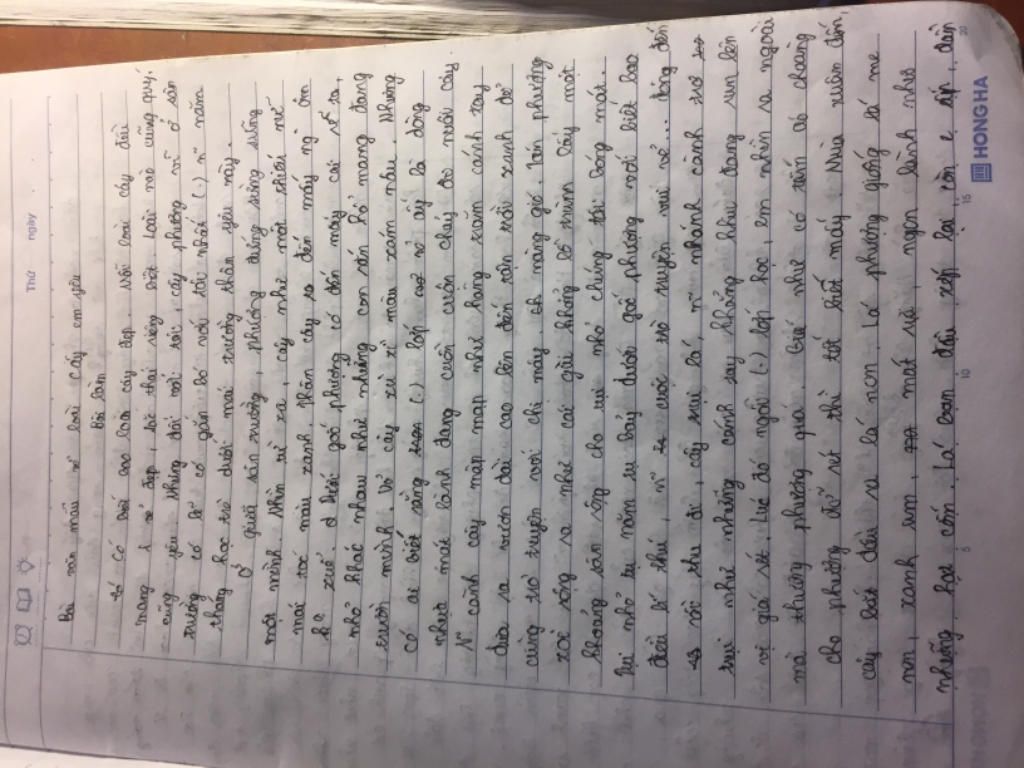 Thứ ngày
Bài văn mẫu về loài cây em yêu
Bài làm
đã có biết bao loài cây đẹp. Mỗi loài cây đều
mang 1 vẻ đẹp, sắc thái riêng biệt. Loài nào cũng quý,
cũng yêu. Nhưng đối với tôi, cây phượng vĩ ở sân
trường có lẽ có gắn bó với tôi nhất (.) n~ năm
tháng học trò dưới mái trường thân yêu này.
Ở giữa sân trường, phượng đứng sừng sững
một mình. Nhìn từ xa, cây như một chiếc
mái tóc màu xanh. Thân cây đến mấy ng ôm
k xuể. dưới gốc phượng có đến mấy cái rễ to,
nhỏ khác nhau như những con rắn hổ mang đang
trườn mình. Vỏ cây xù xì màu xám nâu. Nhưng
có ai biết rằng (.) lớp vỏ ấy là dòng
nhựa mát lành đang cuồn cuộn chảy để nuôi cây
N~ cành cây mập mạp như hàng trăm cánh tay
đưa ra vươn dài cao lên đến tận trời xanh để
cùng trò truyện với chị mây, màng gió. Tán phượng
xòe rộng ra như cái ô khổng lồ che mát một
khoảng sân rộng cho lũ nhỏ chúng tôi bóng mát.
Lũ nhỏ tụi nằm lu bay dưới gốc phượng nơi biết bao
điều lí thú, n~ cuộc trò truyện vui vẻ... đông đến
rồi thu đi, cây trụi lá, n~ nhánh cành trơ
trụi như những cánh tay khẳng khiu đang run lên
vì giá rét. Lúc đó ngồi (.) lớp học, em nhìn ra ngoài
mà thương phượng quá. Giá như có tấm áo choàng
cho phượng đỡ rét thì tốt biết mấy. Mùa xuân đến,
cây bắt đầu ra lá non. Lá phượng giống lá me
non, xanh um, mát rượi, ngon lành như
những hạt cốm. Lá ban đầu xếp lại, còn e ấp, dần
5 10 15 20
HONG HA